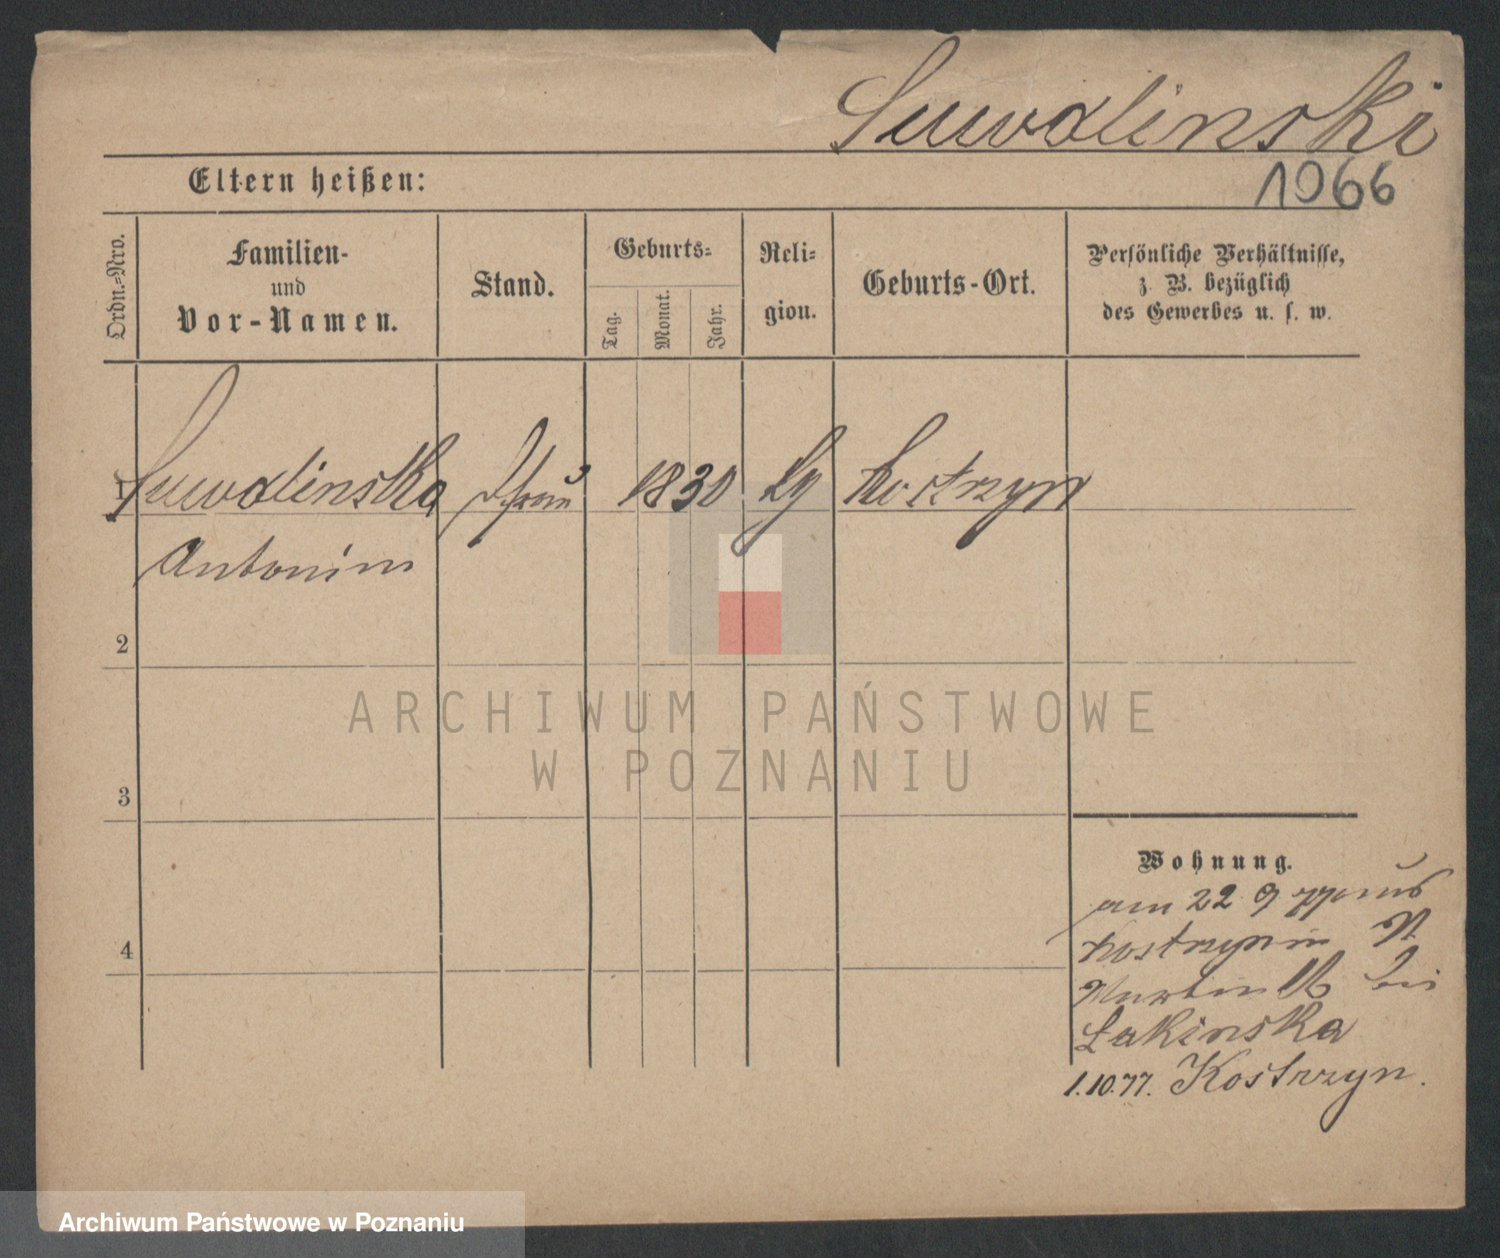 Suwalinski
1966
Eltern heißen:
Ordn.-Nro.
Familien-
und
Vor-Namen.
Stand.
Geburts-
Tag.
Monat.
Jahr.
Reli-
gion.
Geburts-Ort.
Persönliche Verhältnisse,
z. B. bezüglich
des Gewerbes u. s. w.
1 Suwalinska Frau 1830 Kostrzyn
Antonine
2
3
4
Wohnung.
am 22 9 77 aus
Kostrzyn in St
Martin bei
Lakinska
1.10.77. Kostrzyn.
ARCHIWUM PAŃSTWOWE
W POZNANIU
Archiwum Państwowe w Poznaniu